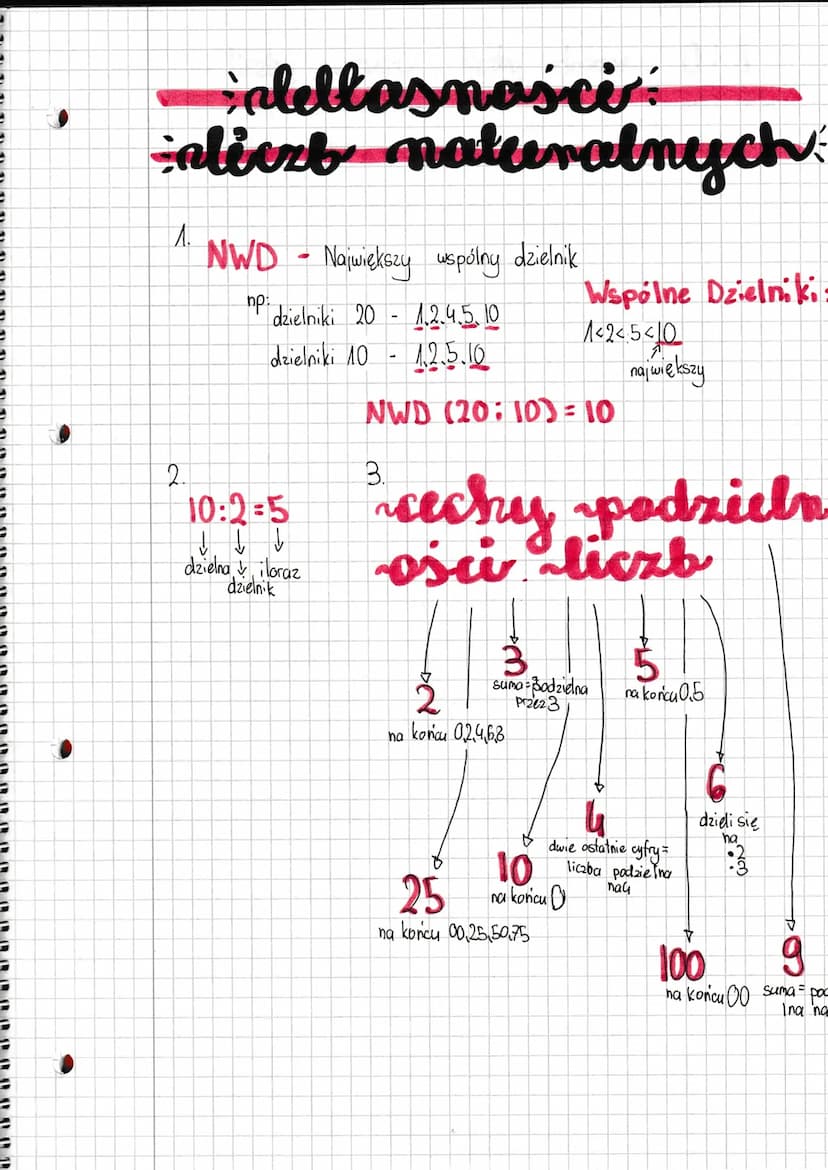 Własności
liczb naturalnych
1.
NWD - Największy wspólny dzielnik
np: dzielniki 20 - 1,2,4,5,10
dzielniki 10 - 1,2,5,10
Wspólne Dzielniki:
1<2<5<10
największy
NWD (20; 10) = 10
2.
10:2=5
dzielna
dzielnik
iloraz
3.
cechy podzieln
ości liczb
2
na końcu 0,2,4,6,8
3
suma = podzielna
przez 3
5
na końcu 0,5
6
dzieli się
na
•2
•3
4
dwie ostatnie cyfry=
liczba podzielna
na 4
10
na końcu 0
25
na końcu 00,25,50,75
100
na końcu 00
9
suma = po
lna na